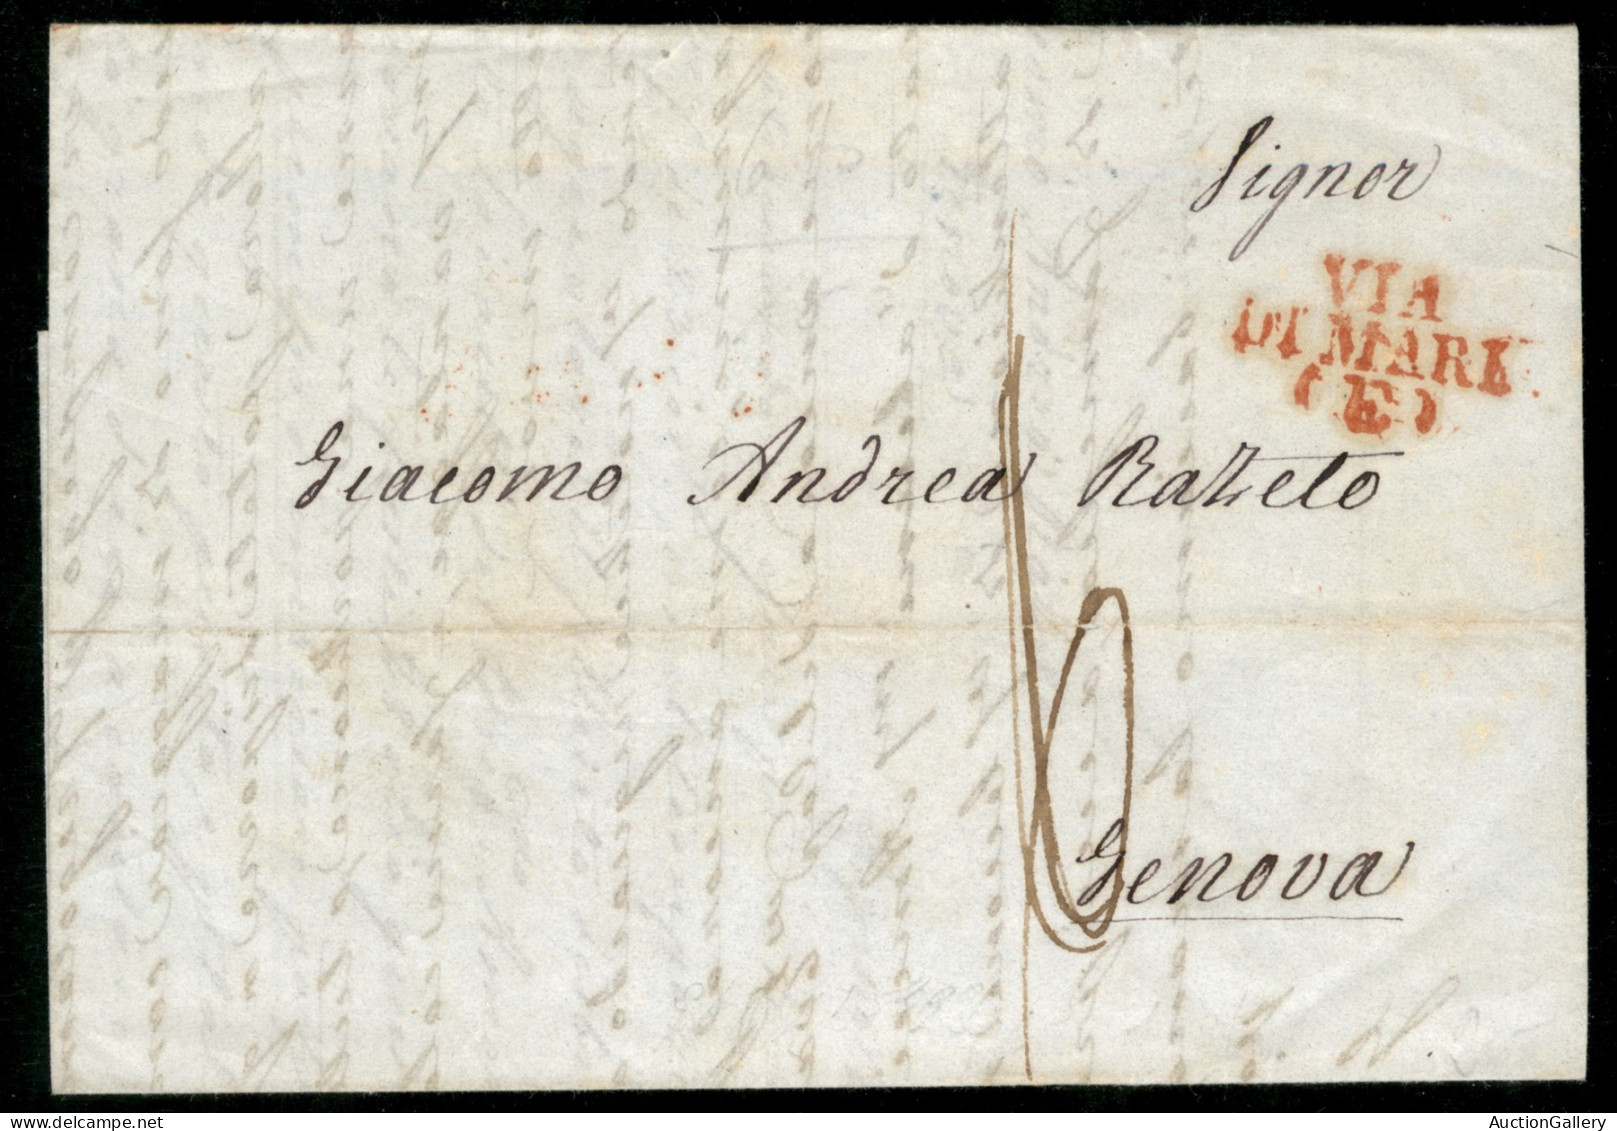 Signor
VIA
DI MARE
(E)
Giacomo Andrea Razeto
6
Genova
AuctionGallery